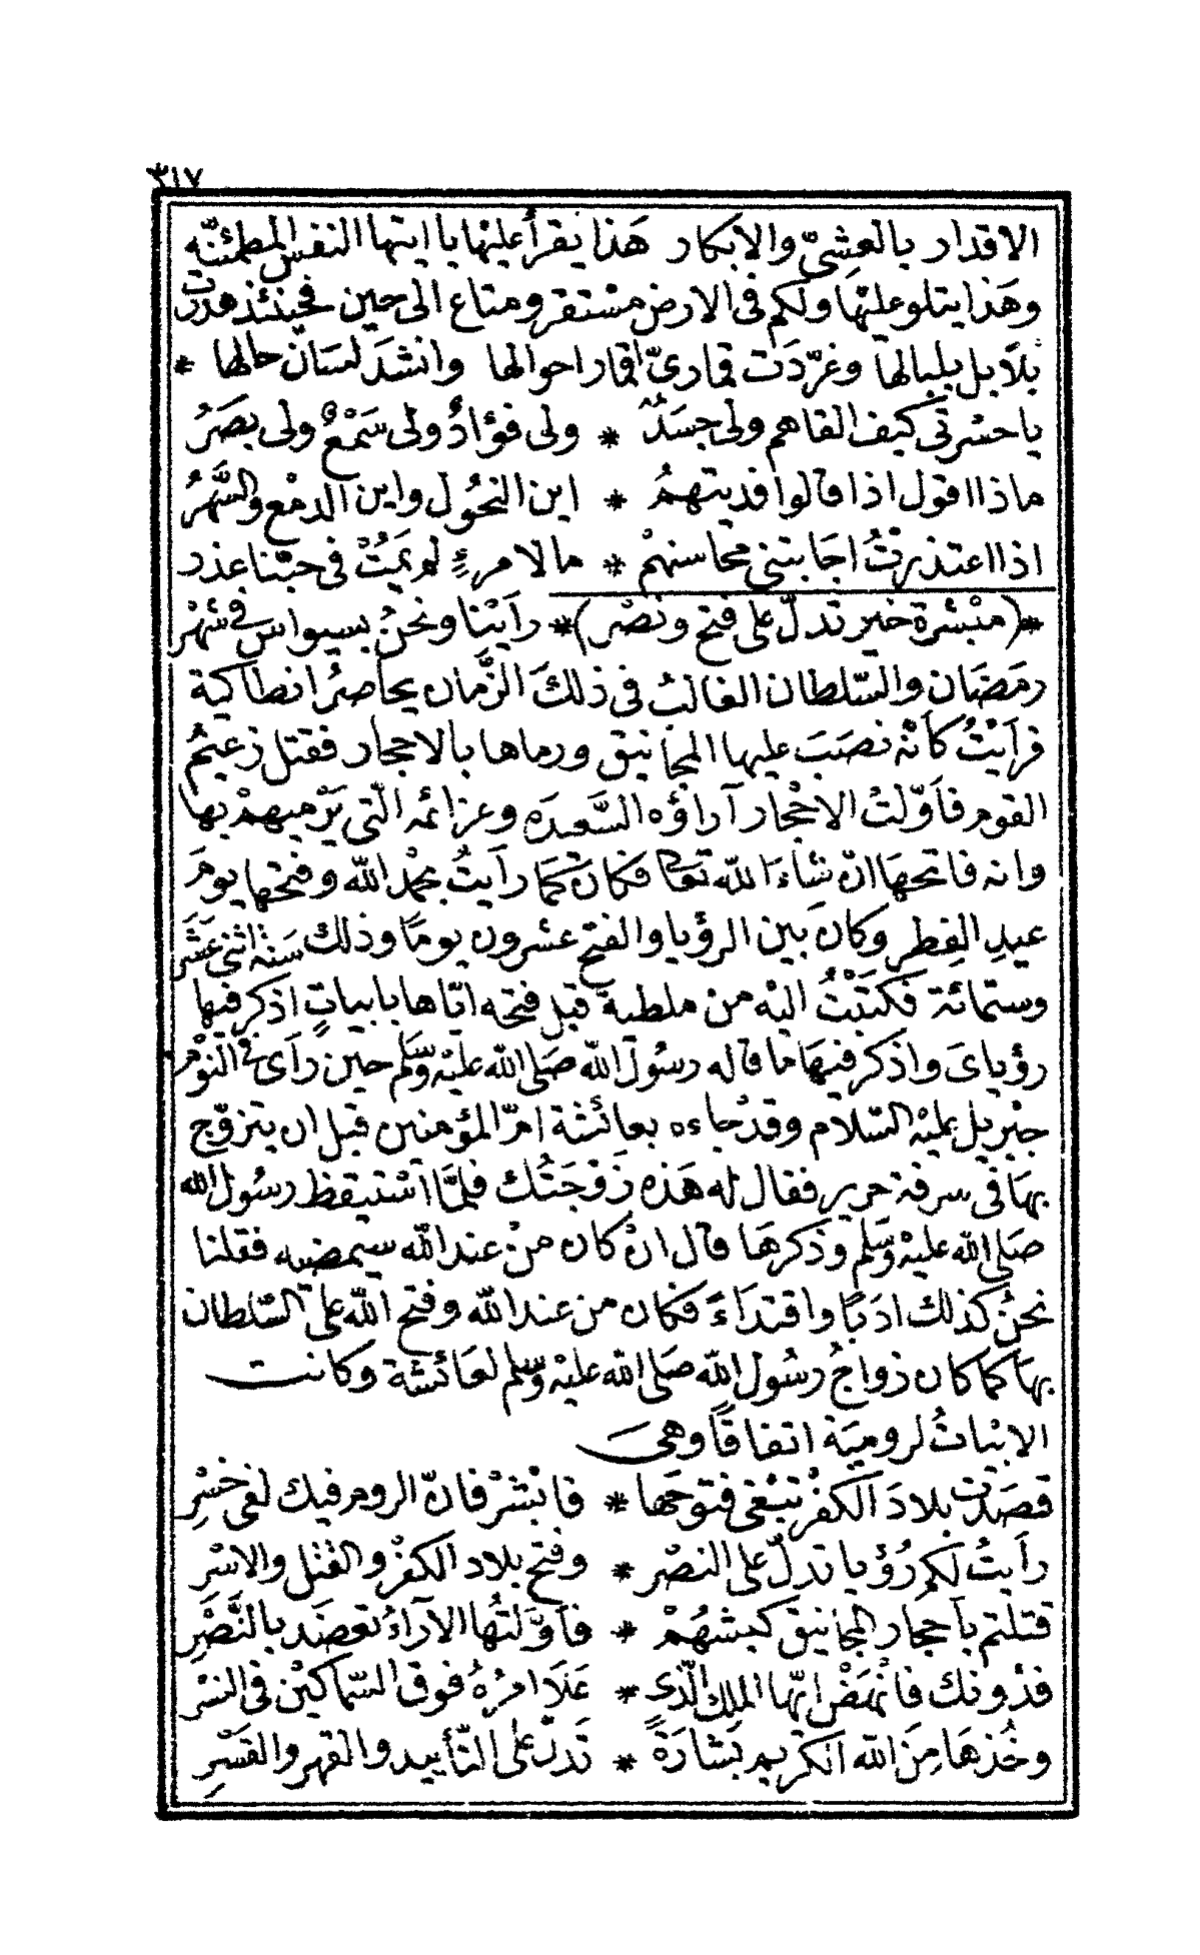 ٣١٧
الاقدار بالعشىّ والابكار هَذا يقرأ عليْها يا ايتها النفس المطمئنّه
وهَذا يتلو عليْها ولكم فى الارض مسْتقر ومتاع الى حين فحينئذ هدرت
بلَابل بلبالها وغرّدَت قمارىّ اقمار احوالها وانشدَ لسَان حالها *
يا حسْرتى كيف القاهم ولى جسَدٌ * ولى فؤادٌ ولى سَمْعٌ ولى بصَرُ
ماذا اقول اذا قالوا فديتهمُ * اين النحُول واين الدمْع والسَّهَرُ
اذا اعتذرْتُ اجَابتنى محاسنهمْ * ما لامرءٍ لم يمَتُ فى حبّنا عذر
*(مبْشرة خير تدلّ على فتح ونصْر)* رأيْنا ونحنُ بسيواس فى شهْر
رمَضَان والسّلطان الغالبُ فى ذلكَ الزّمان يحاصرُ انطاكية
فرأيْتُ كأنّه نصَبَ عليها المجانيق ورماها بالاحجار فقتل زعيمُ
القوم فأوّلتُ الاحْجار آراؤه السَّعيدَه وعزائمه الّتى يَرْميهمْ بها
وانه فاتحهَا انْ شاءَ اللّه تعالى فكانَ كما رأيتُ بحمْد اللّه وفتحها يومَ
عيدِ الفِطر وكان بين الرؤيا والفتح عشرون يومًا وذلك سَنة اثنى عَشَر
وستمائة فكتبْتُ اليْه منْ ملطية قبل فتحه ايّاها بابياتٍ اذكر فيها
رؤياىَ واذكر فيهَا ما قاله رسُول اللّه صَلى اللّه عليْه وسَلم حين رأى فى النوْم
جبْريل عليْه السّلام وقدْ جاءه بعائشة امّ المؤمنين قبل ان يتزوّج
بهَا فى سرقة حرير فقال له هَذه زَوْجَتُك فلمّا اسْتيقظ رسُول اللّه
صَلى اللّه عليْه وسَلم وذكرهَا قال انْ كان منْ عند اللّه سيمضيه فقلنا
نحنُ كذلك ادَبًا واقتدَاءً فكان من عند اللّه وفتح اللّه على السّلطان
بهَا كما كان زواجُ رسُول اللّه صَلى اللّه عليْه وسلم لعَائشة وكانت
الابْياتُ لروميَة اتفاقًا وهىَ
قصَدْت بلادَ الكفْر تبْغى فتوحَها * فابْشرْ فانّ الروم فيك لفى خسْرِ
رأيتُ لكم رُؤيا تدلّ على النصْر * وفتح بلاد الكفْر والقتْل والاسْر
قتلتم بأحجار المجانيق كبشهُمْ * فأوّلتُها الآراءُ تعضَد بالنَّصْر
فدُونك فانْهَضْ ايّها الملك الّذى * عَلَا امرُهُ فوق السّماكيْن فى النسْر
وخُذهَا مِنَ اللّه الكريم بَشارَةً * تدَلّ على التأييد والقهر والقَسْرِ